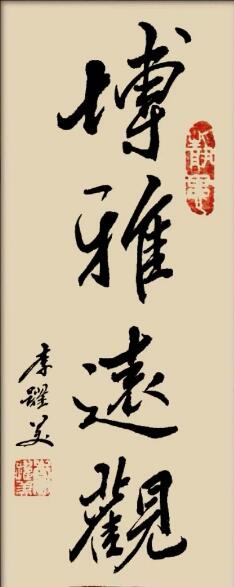 博雅遠觀
李躍